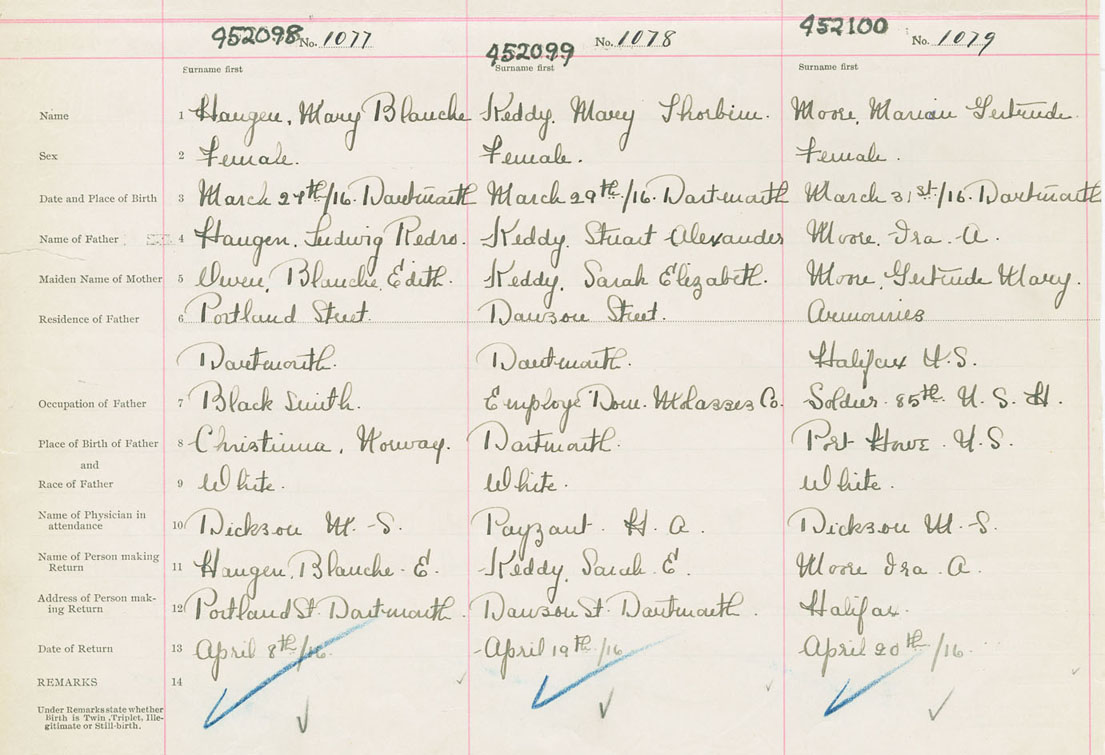 452098 No. 1077
452099 No. 1078
452100 No. 1079
Surname first Surname first Surname first
Name 1 Haugen, Mary Blanche Keddy, Mary Moore, Marian Gertrude.
Sex 2 Female. Female. Female.
Date and Place of Birth 3 March 27th/16. Dartmouth March 29th/16. Dartmouth March 31st/16. Dartmouth
Name of Father 4 Haugen, Ludwig Pedro. Keddy, Stuart Alexander Moore, Ira. A.
Maiden Name of Mother 5 Owen, Blanche, Edith. Keddy, Sarah Elizabeth. Moore, Gertrude Mary.
Residence of Father 6 Portland Street. Dawson Street. Armouries
Dartmouth. Dartmouth. Halifax N.S.
Occupation of Father 7 Black Smith. Employe Dom. Molasses Co. Soldier. 85th N. S. H.
Place of Birth of Father 8 Christinna, Norway. Dartmouth. Port Howe. N.S.
and
Race of Father 9 White. White. White.
Name of Physician in
attendance 10 Dickson M. S. Payzant. H. A. Dickson M. S.
Name of Person making
Return 11 Haugen, Blanche. E. Keddy, Sarah. E. Moore Ira. A.
Address of Person mak-
ing Return 12 Portland St. Dartmouth. Dawson St. Dartmouth. Halifax.
Date of Return 13 April 8th/16. April 19th/16 April 20th/16.
REMARKS 14
Under Remarks state whether
Birth is Twin, Triplet, Ille-
gitimate or Still-birth.